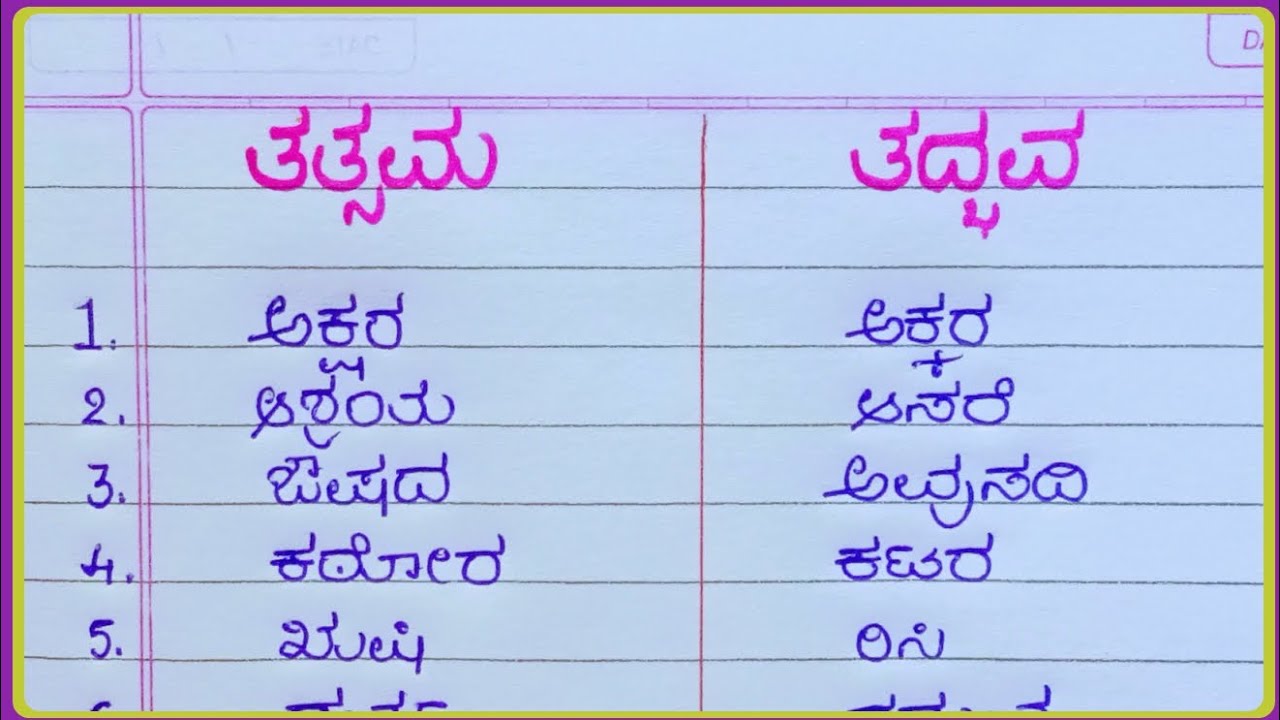 DA
ತತ್ಸಮ ತದ್ಭವ
1. ಅಕ್ಷರ ಅಕ್ಕರ
2. ಆಶ್ರಯ ಆಸರೆ
3. ಔಷದ ಅವುಸದಿ
4. ಕಠೋರ ಕಟರ
5. ಋಷಿ ರಿಸಿ